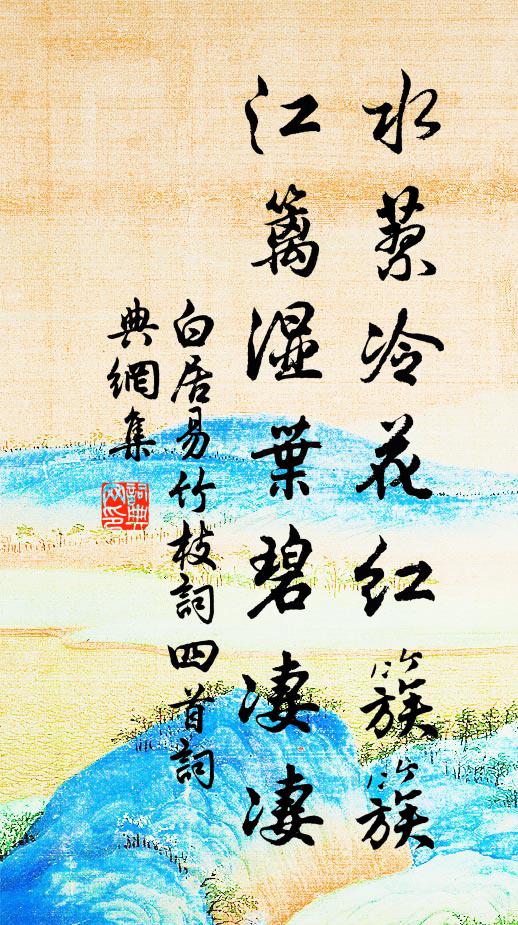 水蓼冷花红簇簇
江篱湿葉碧凄凄
白居易竹枝詞四首詞
典網集
詞典网印